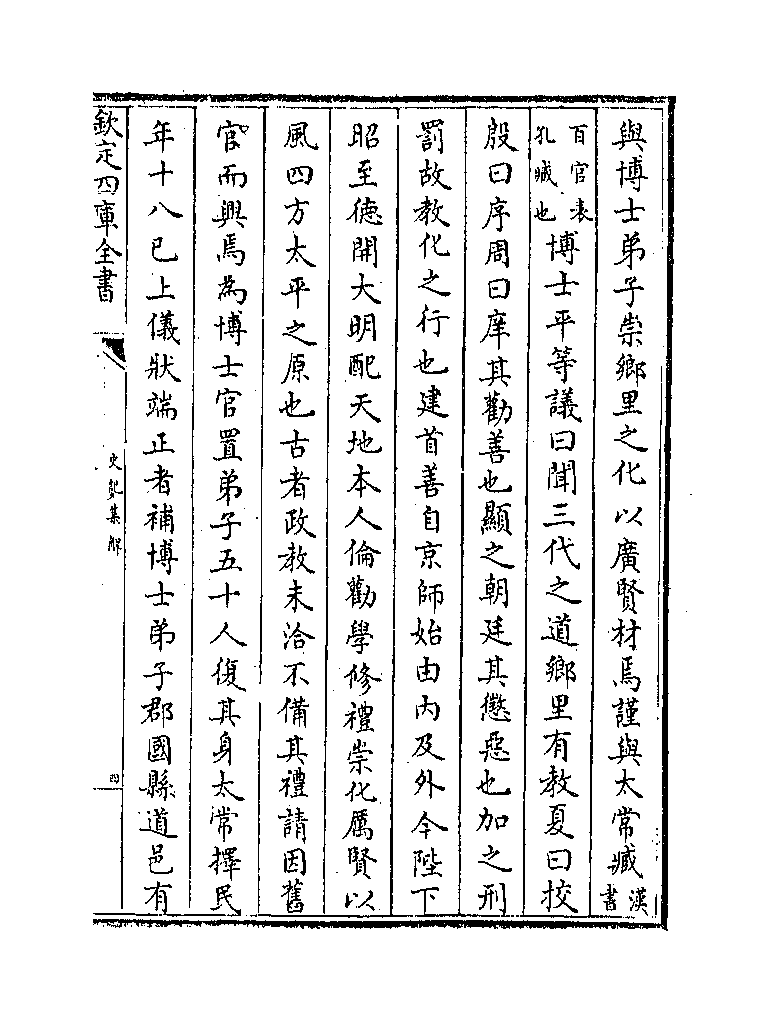 與博士弟子崇鄉里之化以廣賢材焉謹與太常臧漢書
百官表孔臧也博士平等議曰聞三代之道鄉里有教夏曰挍
殷曰序周曰庠其勸善也顯之朝廷其懲惡也加之刑
罰故教化之行也建首善自京師始由内及外今陛下
昭至徳開大明配天地本人倫勸學修禮崇化厲賢以
風四方太平之原也古者政教未洽不備其禮請因舊
官而興焉為博士官置弟子五十人復其身太常擇民
年十八已上儀狀端正者補博士弟子郡國縣道邑有
欽定四庫全書
史記集解
四